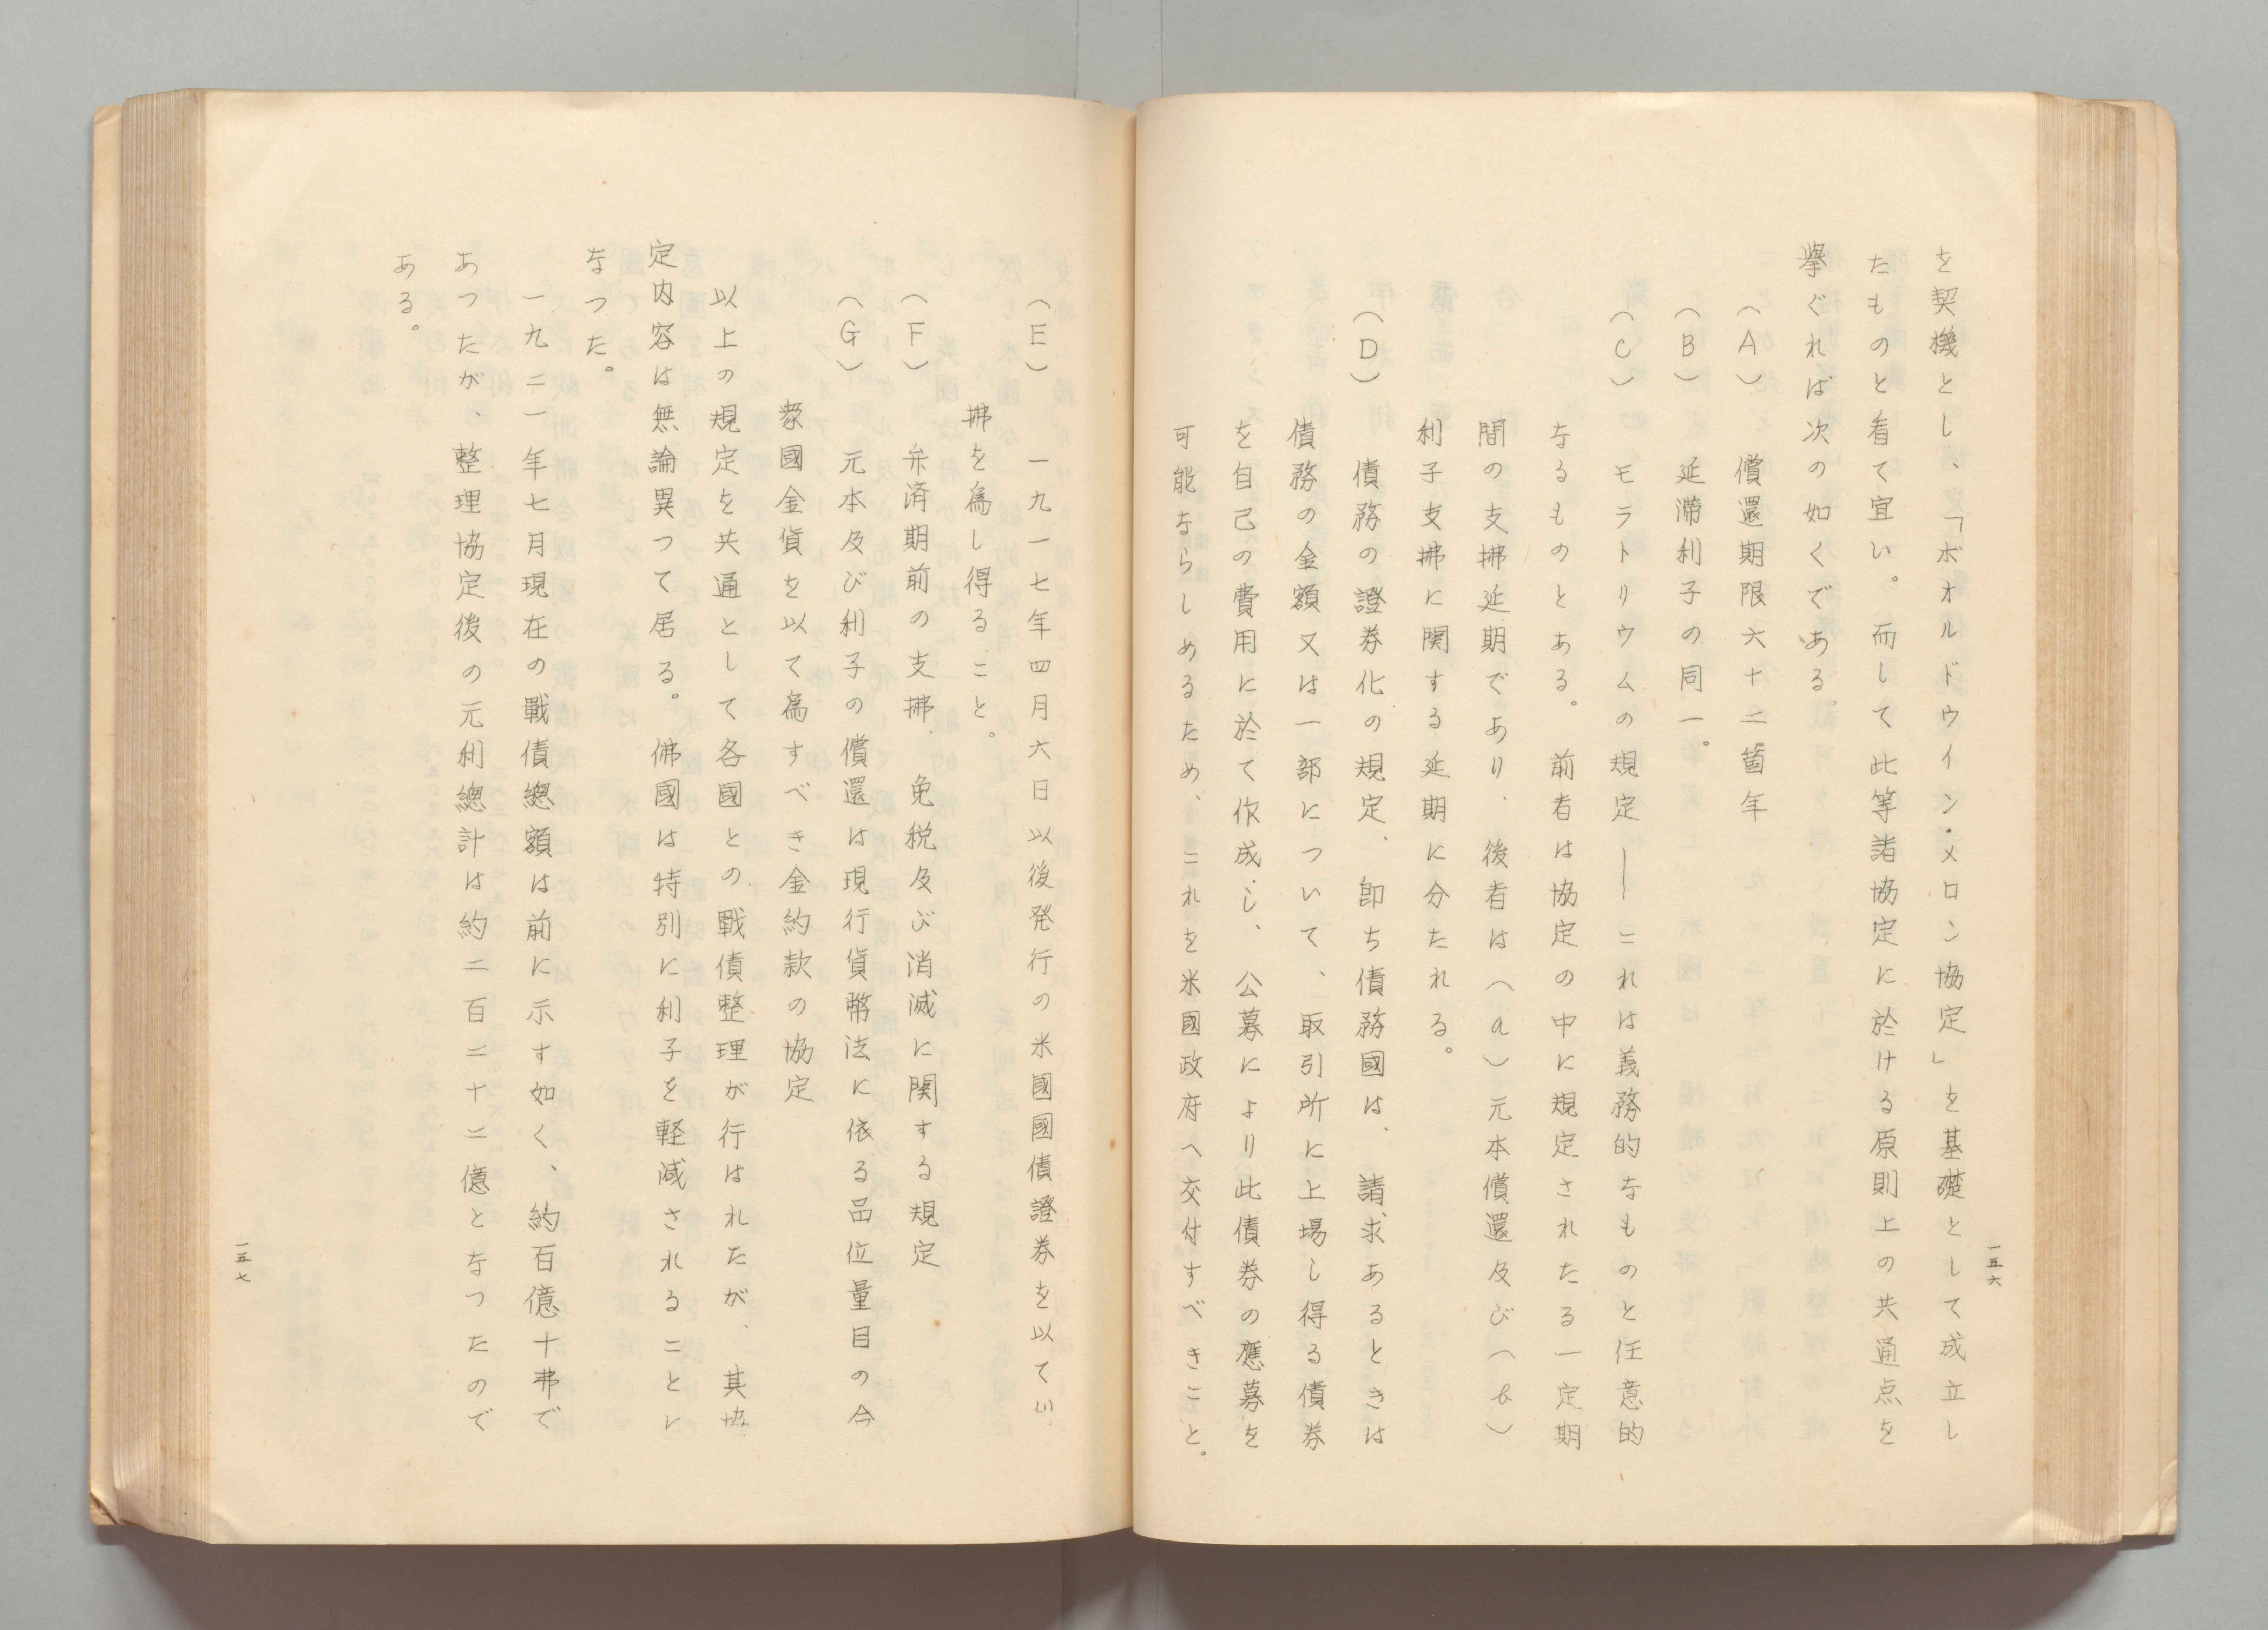 を契機とし、「ボオルドウイン・メロン協定」を基礎として成立し
たものと看て宜い。而して此等諸協定に於ける原則上の共通点を
挙ぐれば次の如くである。
(A) 償還期限六十二箇年
(B) 延滞利子の同一。
(C) モラトリウムの規定――これは義務的なものと任意的
なるものとある。前者は協定の中に規定されたる一定期
間の支拂延期であり、後者は(a)元本償還及び(b)
利子支拂に関する延期に分たれる。
(D) 債務の證券化の規定、即ち債務國は、請求あるときは
債務の金額又は一部について、取引所に上場し得る債券
を自己の費用に於て作成し、公募により此債券の應募を
可能ならしめるため、これを米國政府へ交付すべきこと。
一五六
(E) 一九一七年四月六日以後発行の米國國債證券を以て
拂を為し得ること。
(F) 弁済期前の支拂、免税及び消滅に関する規定
(G) 元本及び利子の償還は現行貨幣法に依る品位量目の合
衆國金貨を以て為すべき金約款の協定
以上の規定を共通として各國との戰債整理が行はれたが、其協
定内容は無論異つて居る。佛國は特別に利子を軽減されること
なつた。
一九二一年七月現在の戰債總額は前に示す如く、約百億十弗で
あつたが、整理協定後の元利總計は約二百二十二億となつたので
ある。
一五七